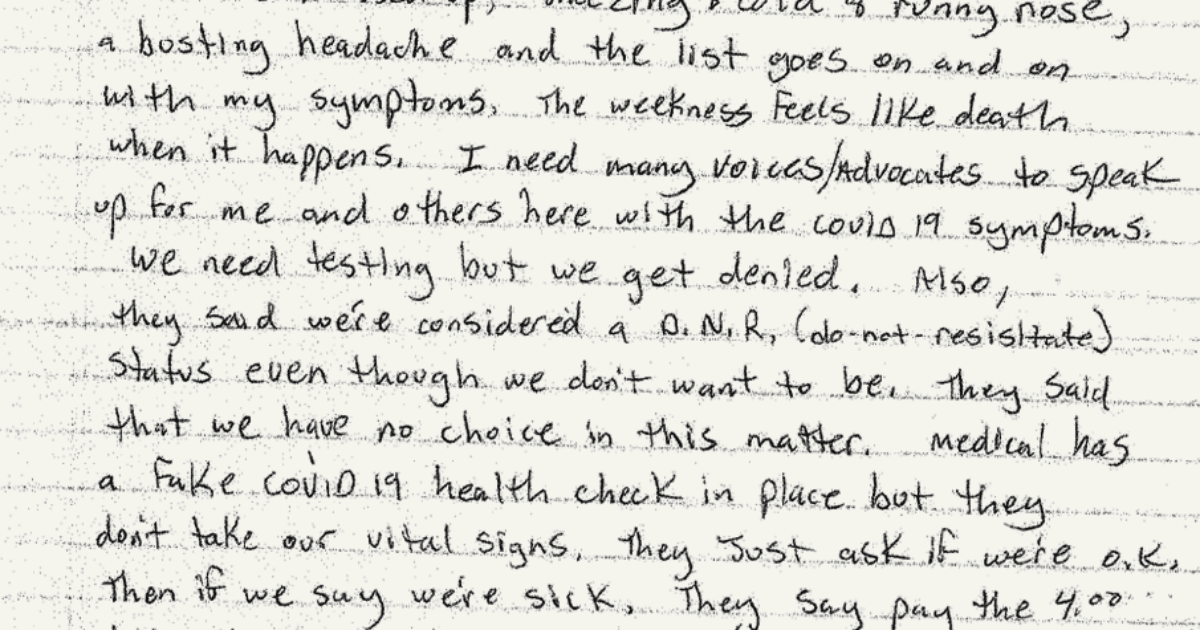 runny nose,
a bosting headache and the list goes on and on
with my symptoms. The weekness Feels like death
when it happens. I need many voices/Advocates to speak
up for me and others here with the covid 19 symptoms.
we need testing but we get denied. Also,
they said we're considered a D.N.R, (do-not-resisitate)
status even though we don't want to be. They Said
that we have no choice in this matter. medical has
a Fake coviD 19 health check in place but they
don't take our vital signs. They Just ask if we're o.k.
Then if we say we're sick. They say pay the 4.00